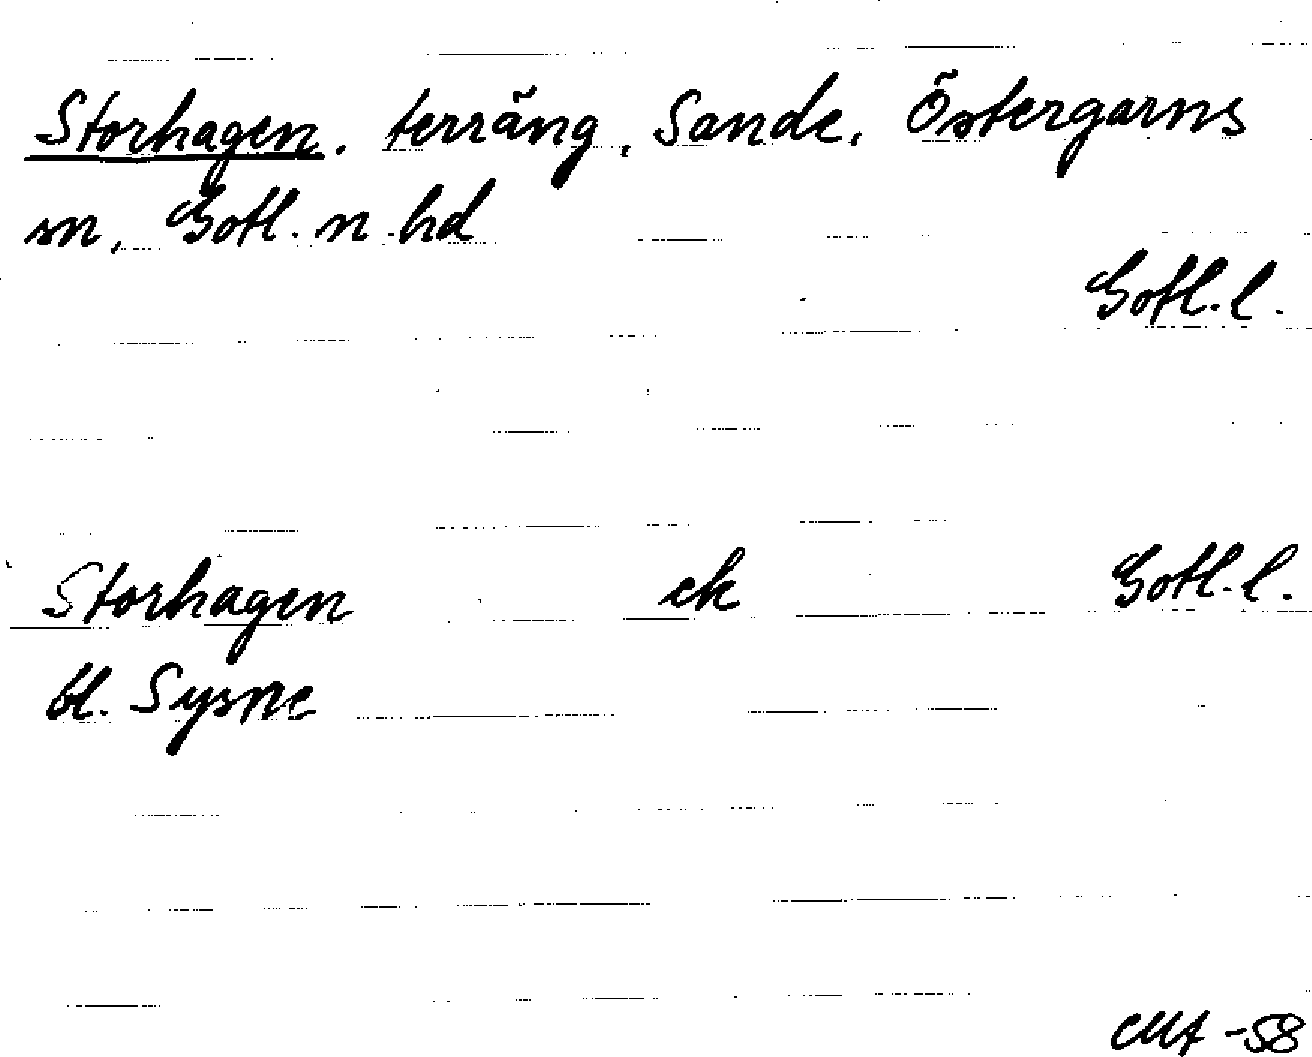 Storhagen. terräng, Sande, Östergarns
sn, Gotl. n. hd
Gotl. l.
Storhagen ek Gotl. l.
bl. Sysne
-58